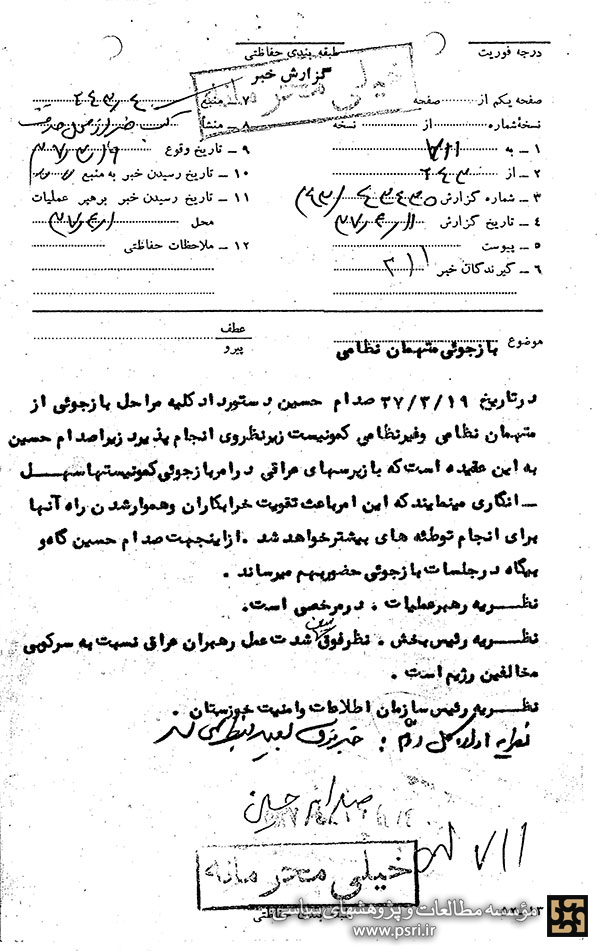 درجه فوریت
طبقه بندی حفاظتی
خیلی محرمانه
گزارش خبر
صفحه یکم از صفحه
نسخه شماره از نسخه
۱ – به ۷۱۱
۲ – از
۳ – شماره گزارش
۴ – تاریخ گزارش
۵ – پیوست
۶ – گیرندگان خبر ۳۱۱
۷ – منبع
۸ – منشأ
۹ – تاریخ وقوع
۱۰ – تاریخ رسیدن خبر به منبع
۱۱ – تاریخ رسیدن خبر برهبر عملیات
محل
۱۲ – ملاحظات حفاظتی
موضوع بازجوئی متهمان نظامی
عطف
پیرو
درتاریخ ۳۷/۳/۱۹ صدام حسین دستورداد کلیه مراحل بازجوئی از
متهمان نظامی وغیرنظامی کمونیست زیرنظروی انجام پذیرد زیرا صدام حسین
به این عقیده است که بازپرسهای عراقی در امر بازجوئی کمونیستها سهل
– انگاری مینمایند که این امر باعث تقویت خرابکاران وهموار شدن راه آنها
برای انجام توطئه های بیشتر خواهد شد . از اینجهت صدام حسین گاه و
بیگاه در جلسات بازجوئی حضور بهم میرساند .
نظریه رهبر عملیات . در مرخصی است.
نظریه رئیس بخش . نظر فوق شدت عمل رهبران عراق نسبت به سرکوبی
مخالفین رژیم است .
نظریه رئیس سازمان اطلاعات وامنیت خوزستان .
نظریه اداره کل دوم :
صدام حسین
۷۱۱
خیلی محرمانه
مؤسسه مطالعات و پژوهشهای سیاسی
www.psri.ir